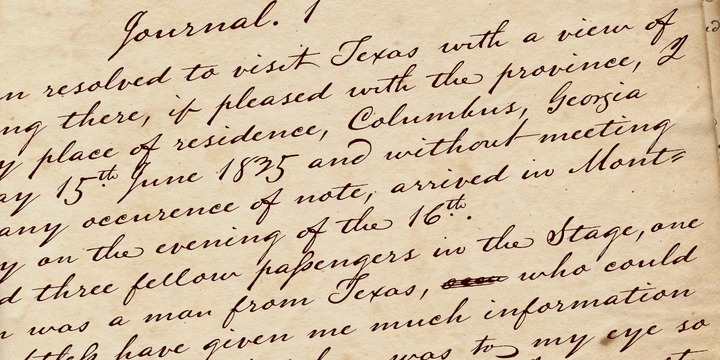 Journal. 1
n resolved to visit Texas with a view of
ng there, if pleased with the province, I
y place of residence, Columbus, Georgia
ay 15th June 1835 and without meeting
any occurence of note, arrived in Mont=
y on the evening of the 16th.
d three fellow passengers in the Stage, one
was a man from Texas, who could
have given me much information
was to my eye so